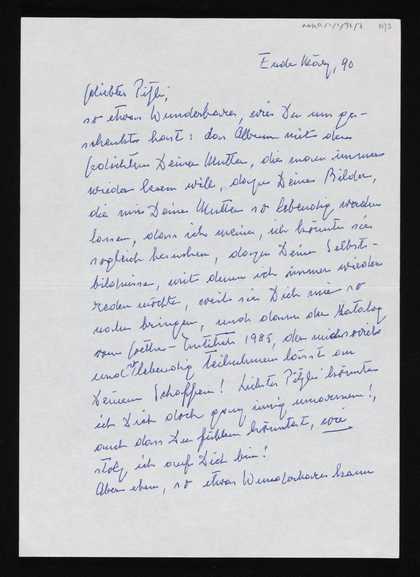 Ende März, 90
so etwas Wunderbares, wie Du uns ge-
schenkt hast: das Album mit den
Gedichten Deiner Mutter, die man immer
wieder lesen will, dazu Deine Bilder,
die mir Deine Mutter so lebendig werden
lassen, dass ich meine, ich könnte sie
sogleich besuchen, dazu Deine Selbst-
bildnisse, mit denen ich immer wieder
reden möchte, weil sie Dich mir so
nahe bringen, und dann der Katalog
vom Goethe-Institut 1985, der mich so
und lebendig teilnehmen lässt an
Deinem Schaffen! könnte
ich Dich doch ganz innig umarmen!,
auch dass Du fühlen könntest, wie
stolz ich auf Dich bin!
Aber eben, so etwas Wunderbares kann